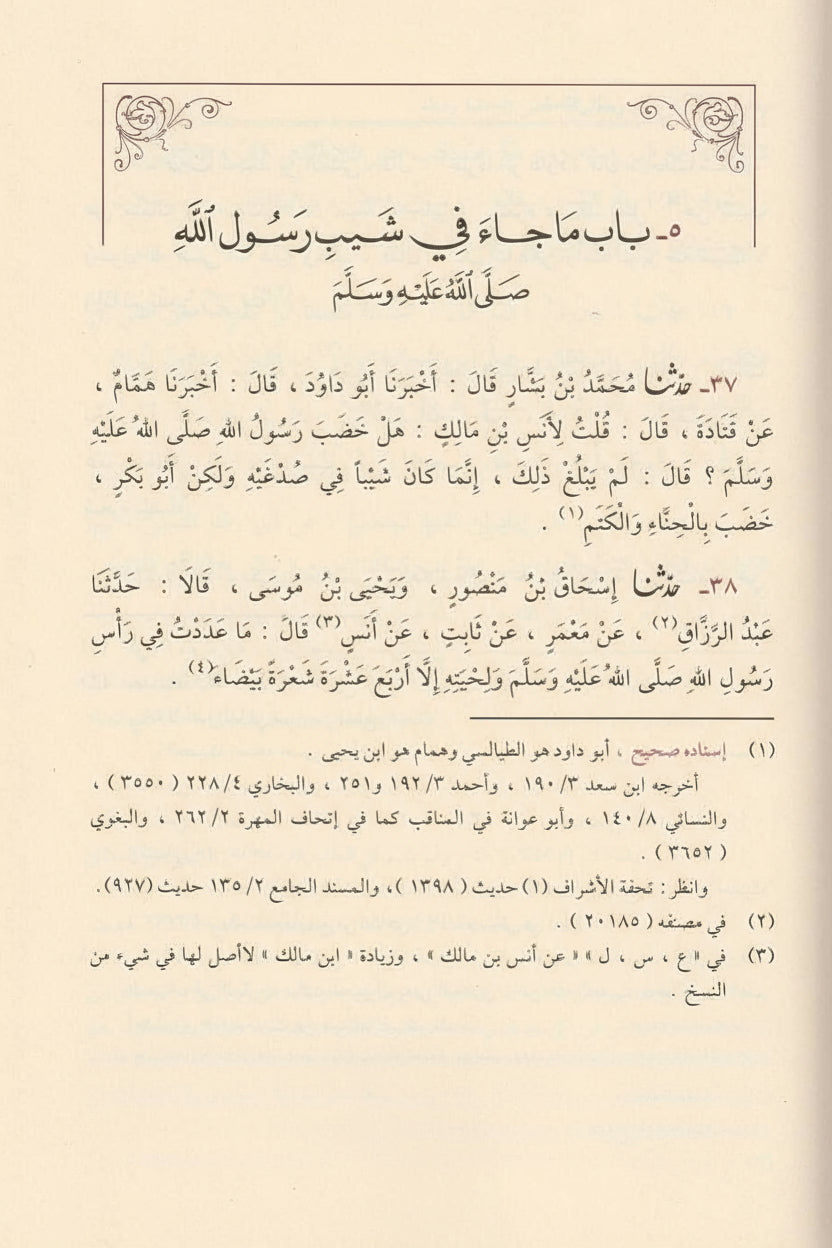 ٥ـ باب مَا جَاءَ فِي شَيبِ رَسُول اللَّهِ
صَلَّى اللَّهُ عَلَيْهِ وَسَلَّمَ
٣٧ـ حدّثنا مُحَمَّدُ بْنُ بَشَّارٍ قَالَ : أَخْبَرَنَا أَبُو دَاوُدَ ، قَالَ : أَخْبَرَنَا هَمَّامٌ ،
عَنْ قَتَادَةَ ، قَالَ : قُلْتُ لِأَنَسِ بْنِ مَالِكٍ : هَلْ خَضَبَ رَسُولُ اللهِ صَلَّى اللهُ عَلَيْهِ
وَسَلَّمَ ؟ قَالَ : لَمْ يَبْلُغْ ذَلِكَ ، إِنَّمَا كَانَ شَيْباً فِي صُدْغَيْهِ وَلَكِنْ أَبُو بَكْرٍ ،
خَضَبَ بِالْحِنَّاءِ وَالْكَتَمِ(١) .
٣٨ـ حدّثنا إِسْحَاقُ بْنُ مَنْصُورٍ ، وَيَحْيَى بْنُ مُوسَى ، قَالَا : حَدَّثَنَا
عَبْدُ الرَّزَّاقِ(٢) ، عَنْ مَعْمَرٍ ، عَنْ ثَابِتٍ ، عَنْ أَنَسٍ(٣) قَالَ : مَا عَدَدْتُ فِي رَأْسِ
رَسُولِ اللهِ صَلَّى اللهُ عَلَيْهِ وَسَلَّمَ وَلِحْيَتِهِ إِلَّا أَرْبَعَ عَشْرَةَ شَعْرَةً بَيْضَاءَ(٤) .
(١) إسناده صحيح ، أبو داود هو الطيالسي وهمام هو ابن يحيى .
أخرجه ابن سعد ٣/ ١٩٠ ، وأحمد ٣/ ١٩٢ و٢٥١ ، والبخاري ٤/ ٢٢٨ ( ٣٥٥٠ ) ،
والنسائي ٨/ ١٤٠ ، وأبو عوانة في المناقب كما في إتحاف المهرة ٢/ ٢٦٢ ، والبغوي
( ٣٦٥٢ ) .
وانظر : تحفة الأشراف (١) حديث ( ١٣٩٨ )، والمسند الجامع ٢/ ١٣٥ حديث (٩٢٧).
(٢) في مصنفه ( ٢٠١٨٥ ) .
(٣) في « ع ، س ، ل » « عن أنس بن مالك » ، وزيادة « ابن مالك » لا أصل لها في شيء من
النسخ .